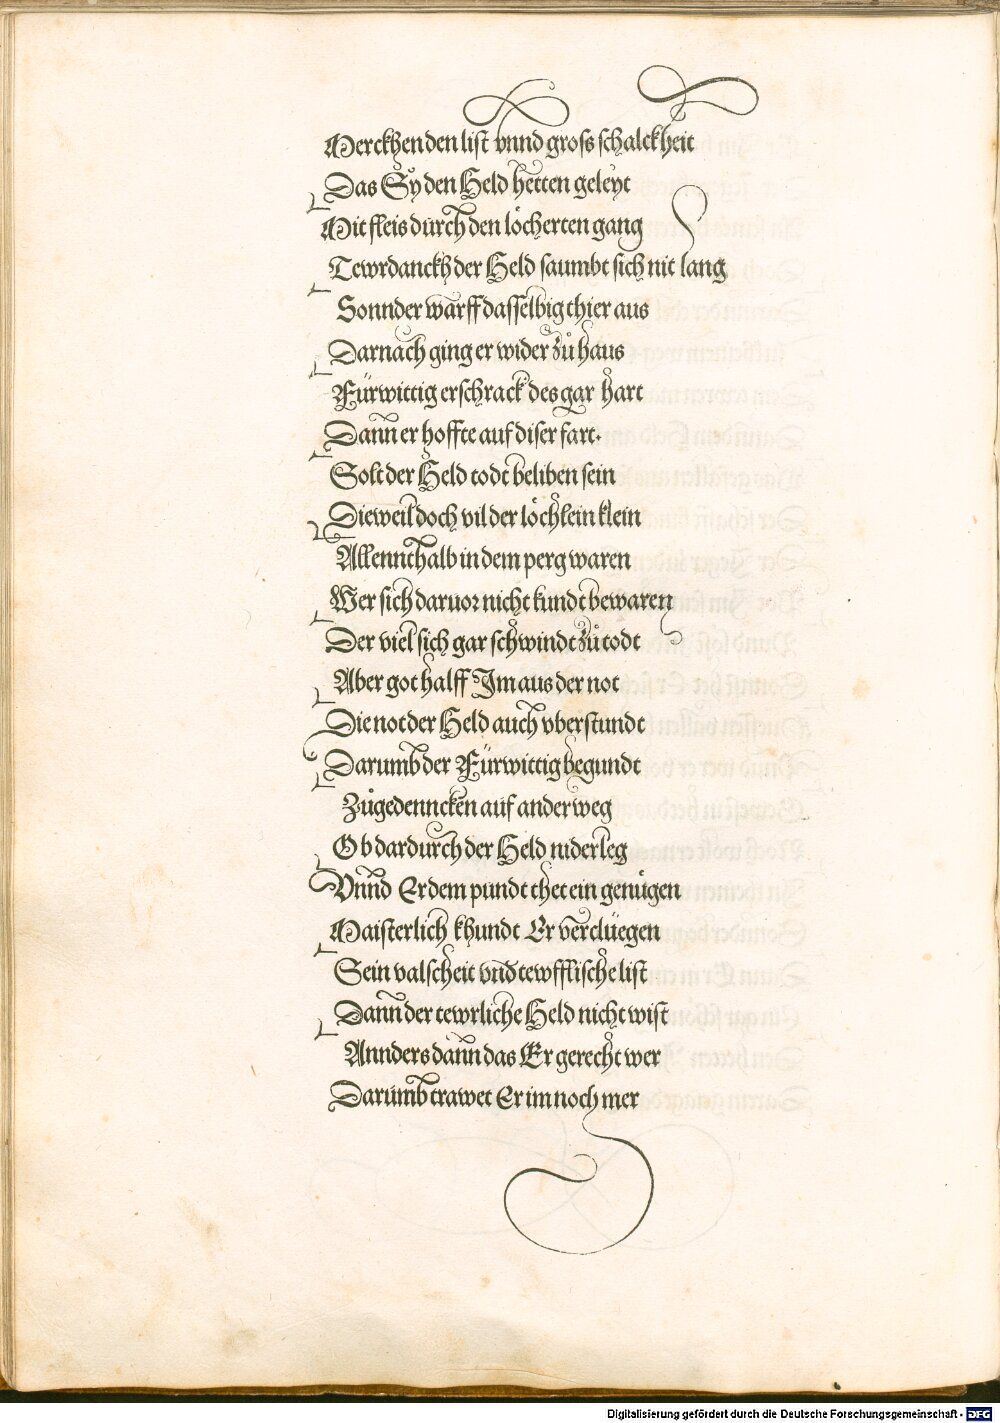 Merckhen den list vnnd groſs ſchalckheit
Das Sy den Held hetten geleyt
Mit fleis durch den löcherten gang
Tewrdanckh der Held ſaumbt ſich nit lang
Sonnder warff daſſelbig thier aus
Darnach ging er wider zů haus
Fürwittig erſchrack des gar hart
Dann er hoffte auf diſer fart.
Solt der Held todt beliben ſein
Dieweil doch vil der löchlein klein
Allennthalb in dem perg waren
Wer ſich daruor nicht kundt bewaren
Der viel ſich gar ſchwindt zů todt
Aber got halff Im aus der not
Die not der Held auch vberſtundt
Darumb der Fürwittig begundt
Zůgedenncken auf ander weg
Ob dardurch der Held niderleg
Vnnd Er dem pundt thet ein genügen
Maiſterlich khundt Er verclüegen
Sein valſcheit vnd tewffliſche liſt
Dann der tewrliche Held nicht wiſt
Annders dann das Er gerecht wer
Darumb trawet Er im noch mer
Digitalisierung gefördert durch die Deutsche Forschungsgemeinschaft - DFG